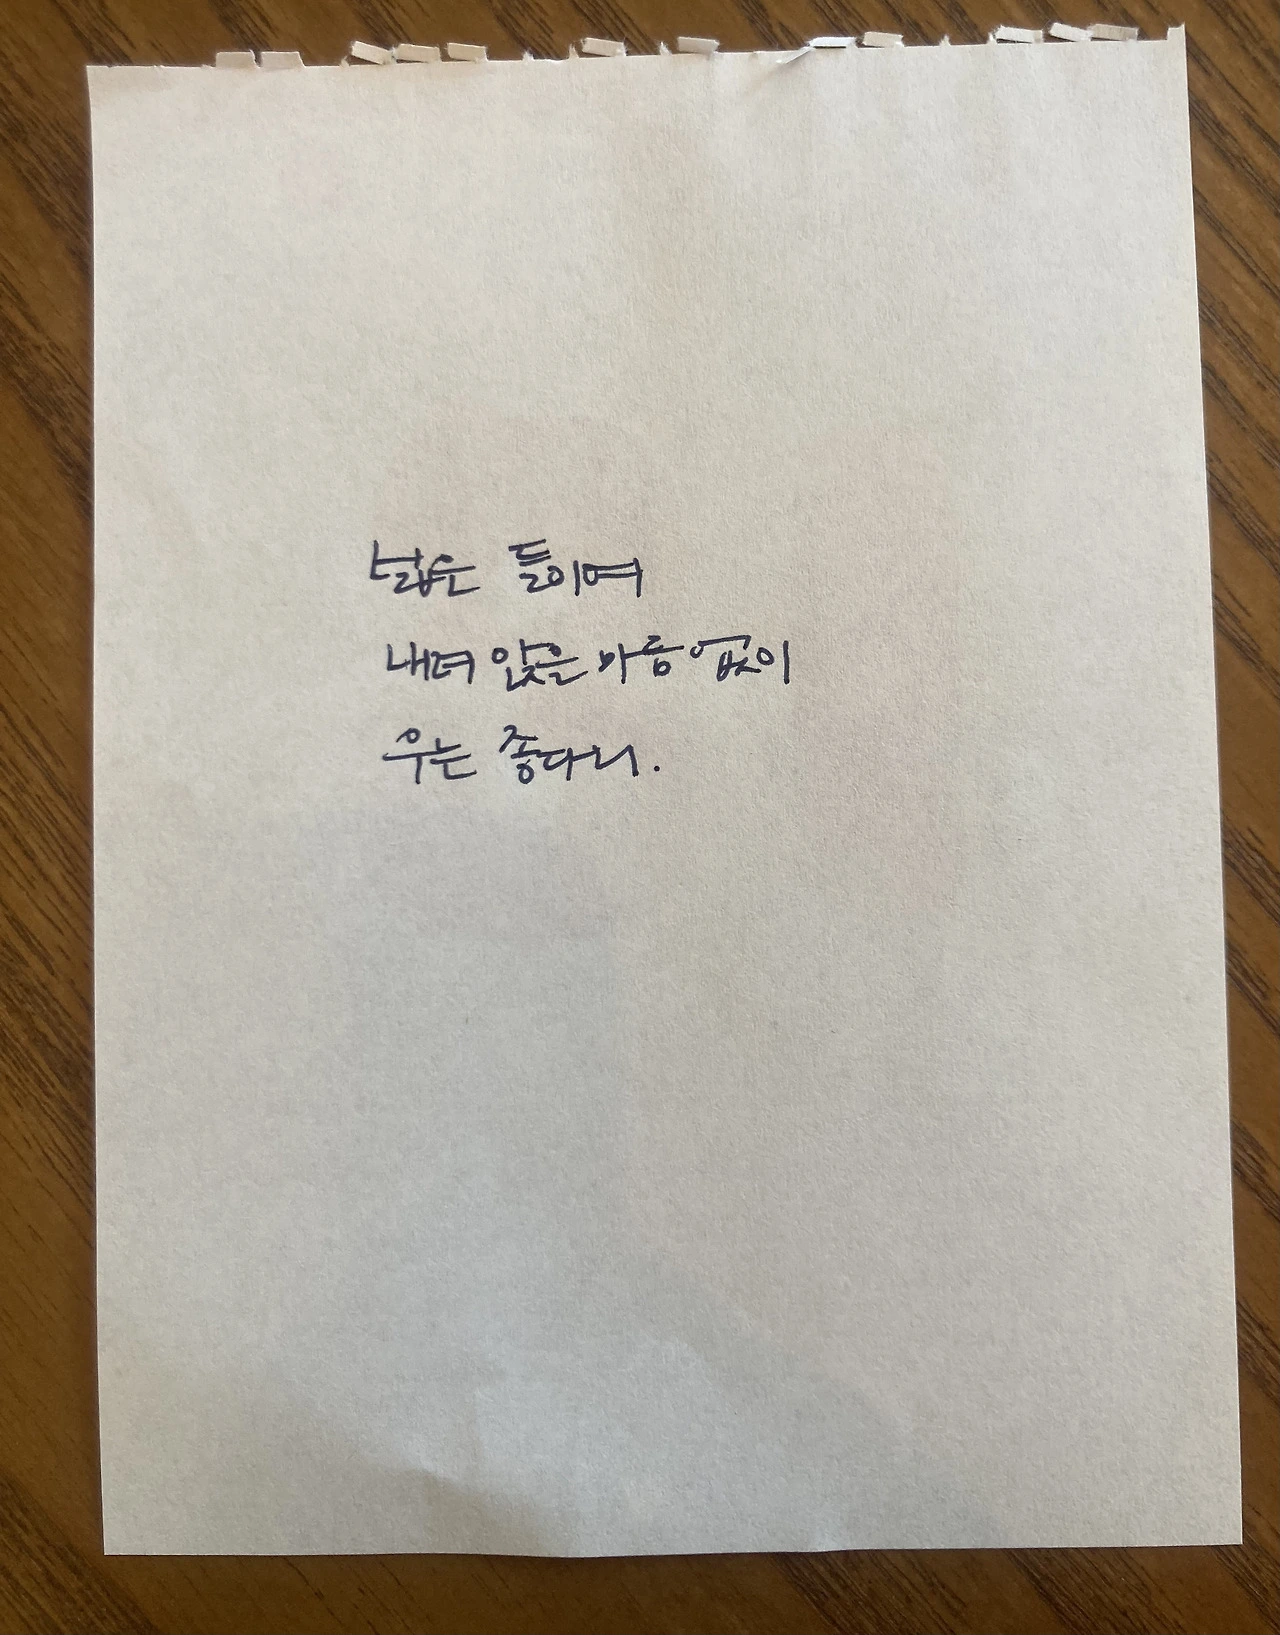 넓은 들이여
내려 앉은 마음 없이
우는 종다리.